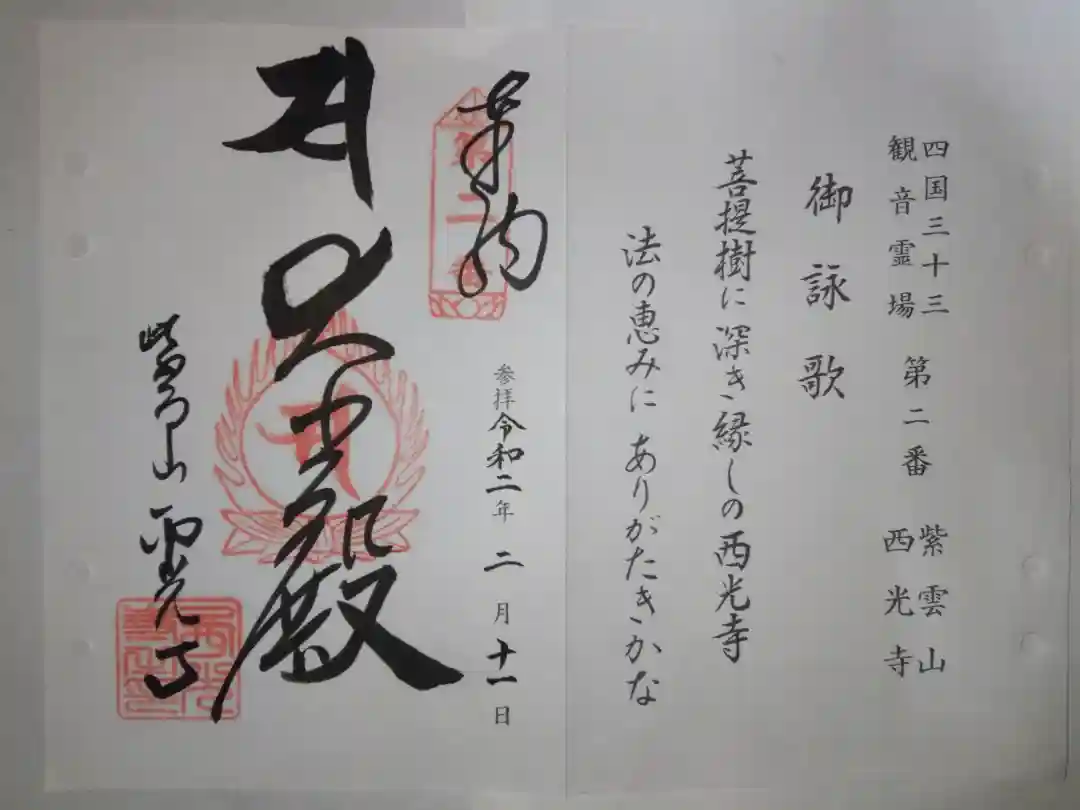 四国三十三
観音霊場 第二番 紫雲山
西光寺
御詠歌
菩提樹に 深き縁しの西光寺
法の恵みに ありがたきかな
奉納
第二番
参拝 令和二年 二月十一日
大士殿
紫雲山 西光寺